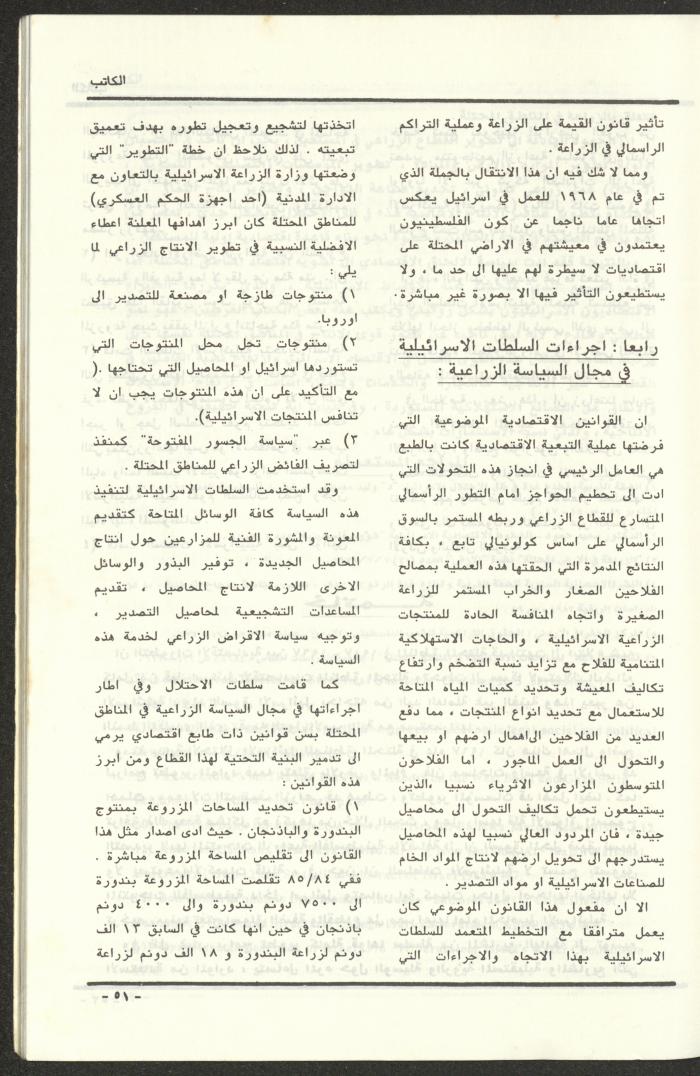 الكاتب
تأثير قانون القيمة على الزراعة وعملية التراكم
الراسمالي في الزراعة .
ومما لا شك فيه ان هذا الانتقال بالجملة الذي
تم في عام ١٩٦٨ للعمل في اسرائيل يعكس
اتجاها عاما ناجما عن كون الفلسطينيون
يعتمدون في معيشتهم في الاراضي المحتلة على
اقتصاديات لا سيطرة لهم عليها الى حد ما ، ولا
يستطيعون التأثير فيها الا بصورة غير مباشرة.
رابعا : اجراءات السلطات الاسرائيلية
في مجال السياسة الزراعية :
ان القوانين الاقتصادية الموضوعية التي
فرضتها عملية التبعية الاقتصادية كانت بالطبع
هي العامل الرئيسي في انجاز هذه التحولات التي
ادت الى تحطيم الحواجز امام التطور الرأسمالي
المتسارع للقطاع الزراعي وربطه المستمر بالسوق
الرأسمالي على اساس كولونيالي تابع ، بكافة
النتائج المدمرة التي الحقتها هذه العملية بمصالح
الفلاحين الصغار والخراب المستمر للزراعة
الصغيرة واتجاه المنافسة الحادة للمنتجات
الزراعية الاسرائيلية ، والحاجات الاستهلاكية
المتنامية للفلاح مع تزايد نسبة التضخم وارتفاع
تكاليف المعيشة وتحديد كميات المياه المتاحة
للاستعمال مع تحديد انواع المنتجات ، مما دفع
العديد من الفلاحين الىاهمال ارضهم او بيعها
والتحول الى العمل الماجور ، اما الفلاحون
المتوسطون المزارعون الاثرياء نسبيا ،الذين
يستيطعون تحمل تكاليف التحول الى محاصيل
جيدة ، فان المردود العالي نسبيا لهذه المحاصيل
يستدرجهم الى تحويل ارضهم لانتاج المواد الخام
للصناعات الاسرائيلية او مواد التصدير .
الا ان مفعول هذا القانون الموضوعي كان
يعمل مترافقا مع التخطيط المتعمد للسلطات
الاسرائيلية بهذا الاتجاه والاجراءات التي
اتخذتها لتشجيع وتعجيل تطوره بهدف تعميق
تبعيته . لذلك نلاحظ ان خطة "التطوير" التي
وضعتها وزارة الزراعة الاسرائيلية بالتعاون مع
الادارة المدنية (احد اجهزة الحكم العسكري)
للمناطق المحتلة كان ابرز اهدافها المعلنة اعطاء
الافضلية النسبية في تطوير الانتاج الزراعي لما
يلي :
١) منتوجات طازجة او مصنعة للتصدير الى
اوروبا.
٢) منتوجات تحل محل المنتوجات التي
تستوردها اسرائيل او المحاصيل التي تحتاجها .(
مع التأكيد على ان هذه المنتوجات يجب ان لا
تنافس المنتجات الاسرائيلية).
٣) عبر "سياسة الجسور المفتوحة" كمنفذ
لتصريف الفائض الزراعي للمناطق المحتلة .
وقد استخدمت السلطات الاسرائيلية لتنفيذ
هذه السياسة كافة الوسائل المتاحة كتقديم
المعونة والمشورة الفنية للمزارعين حول انتاج
المحاصيل الجديدة ، توفير البذور والوسائل
الاخرى اللازمة لانتاج المحاصيل ، تقديم
المساعدات التشجيعية لمحاصيل التصدير ،
وتوجيه سياسة الاقراض الزراعي لخدمة هذه
السياسة .
كما قامت سلطات الاحتلال وفي اطار
اجراءاتها في مجال السياسة الزراعية في المناطق
المحتلة بسن قوانين ذات طابع اقتصادي يرمي
الى تدمير البنية التحتية لهذا القطاع ومن ابرز
هذه القوانين :
١) قانون تحديد المساحات المزروعة بمنتوج
البندورة والباذنجان . حيث ادى اصدار مثل هذا
القانون الى تقليص المساحة المزروعة مباشرة .
ففي ٨٥/٨٤ تقلصت المساحة المزروعة بندورة
الى ٧٥٠٠ دونم بندورة والى ٤٠٠٠ دونم
باذنجان في حين انها كانت في السابق ١٣ الف
دونم لزراعة البندورة و ١٨ الف دونم لزراعة
- ٥١ -